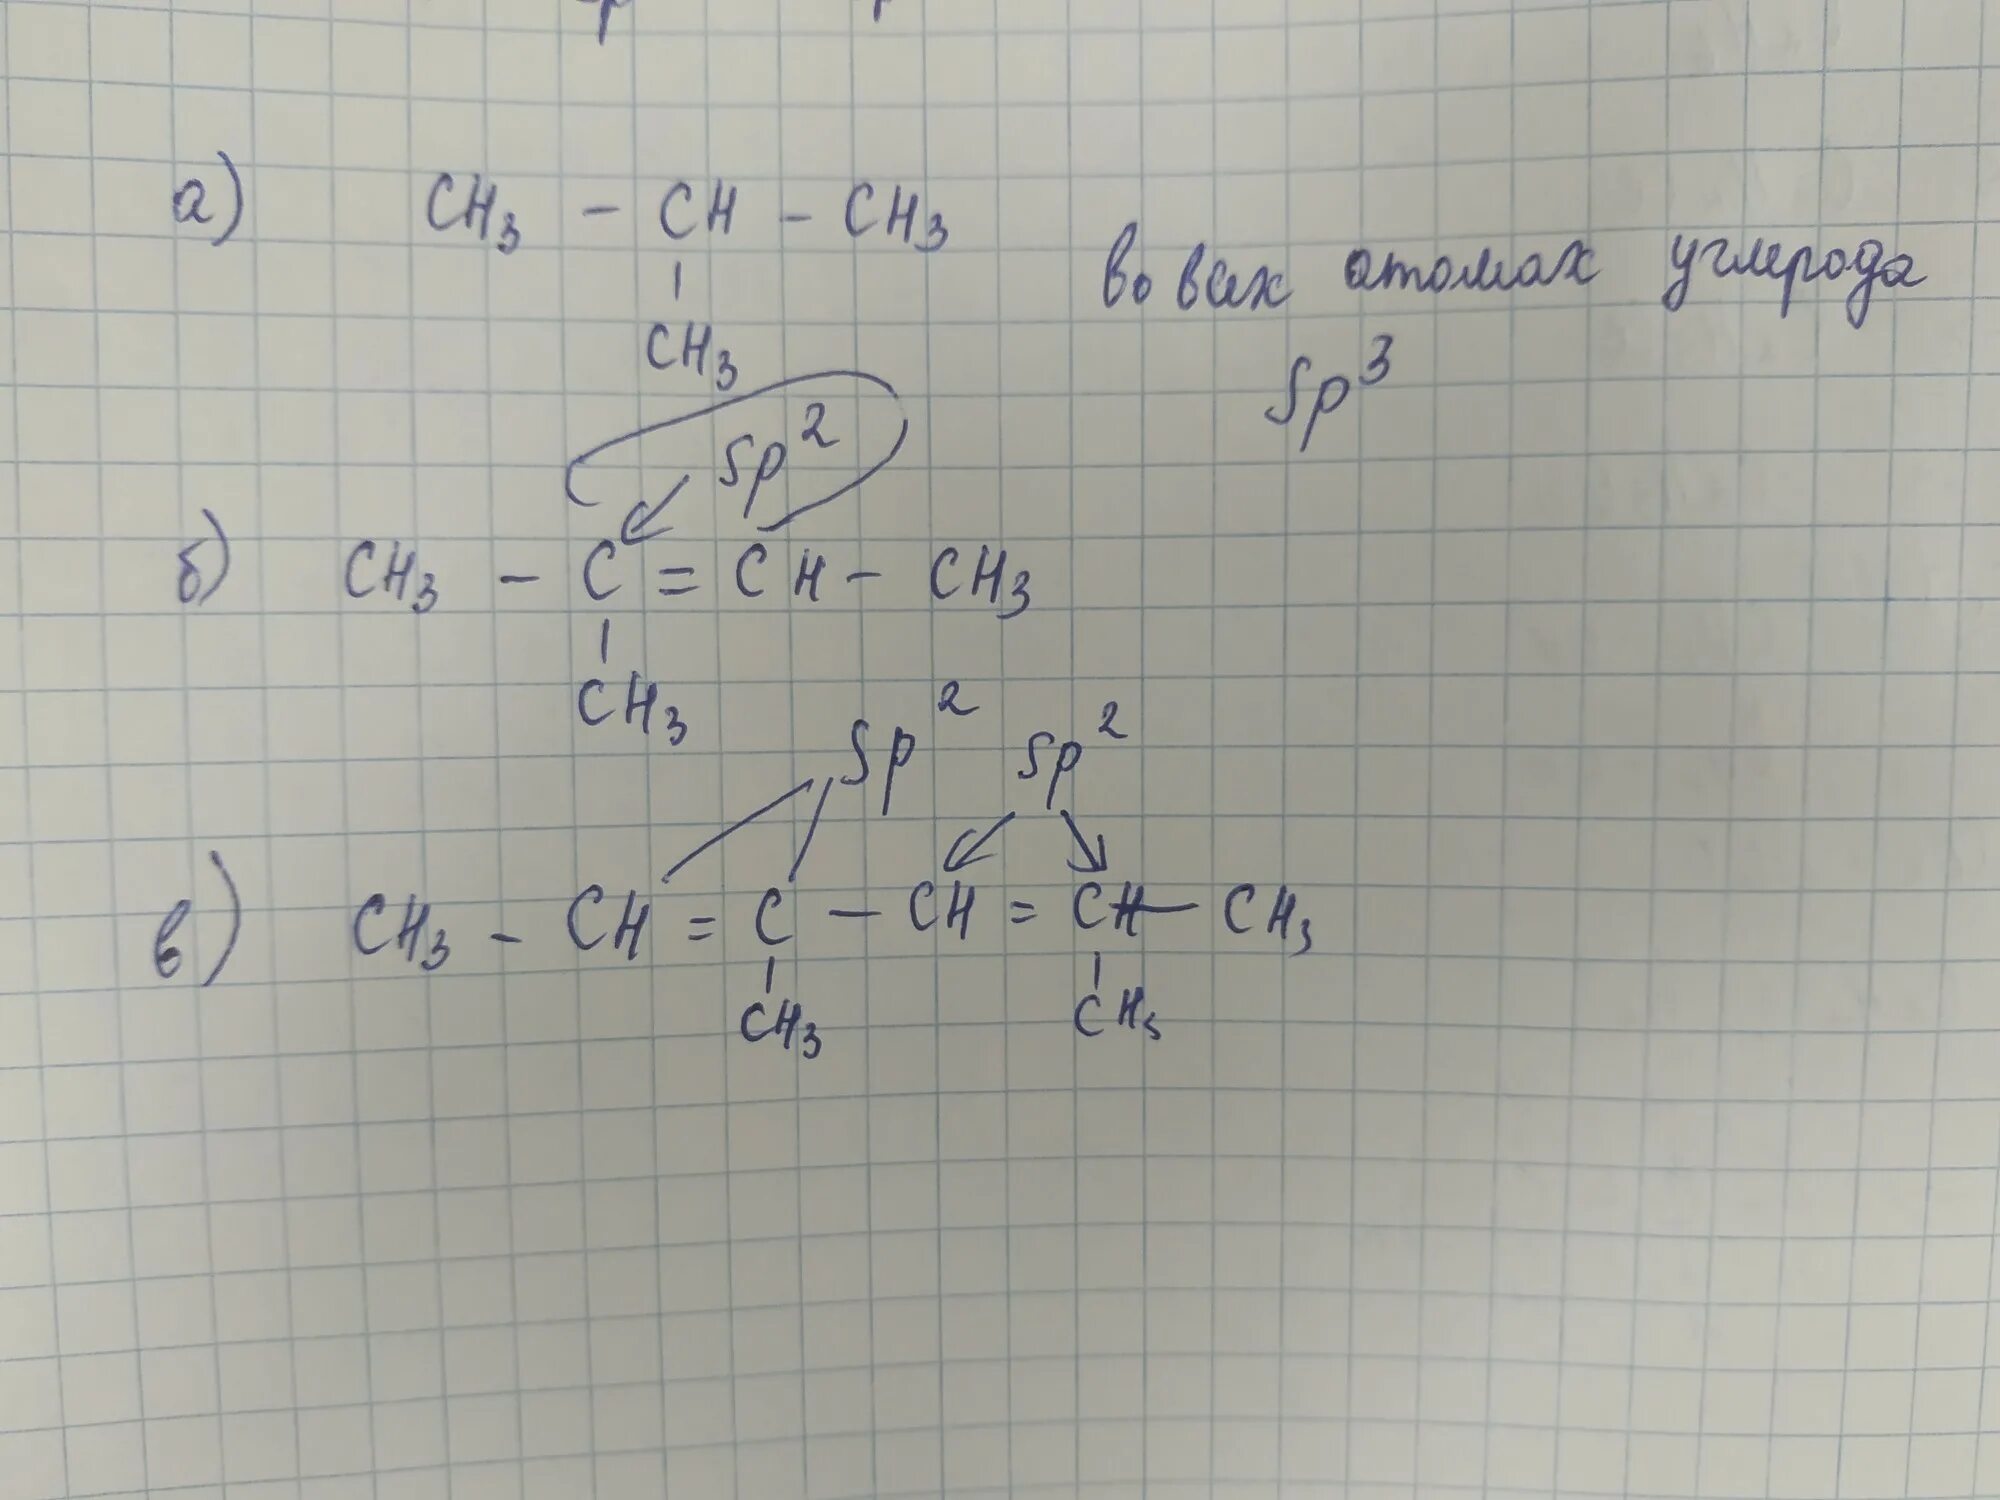 а) CH3 – CH – CH3
во всех атомах углерода
CH3
Sp3
Sp2
б) CH3 – C = CH – CH3
CH3
Sp2 Sp2
в) CH3 – CH = C – CH = CH – CH3
CH3 CH3